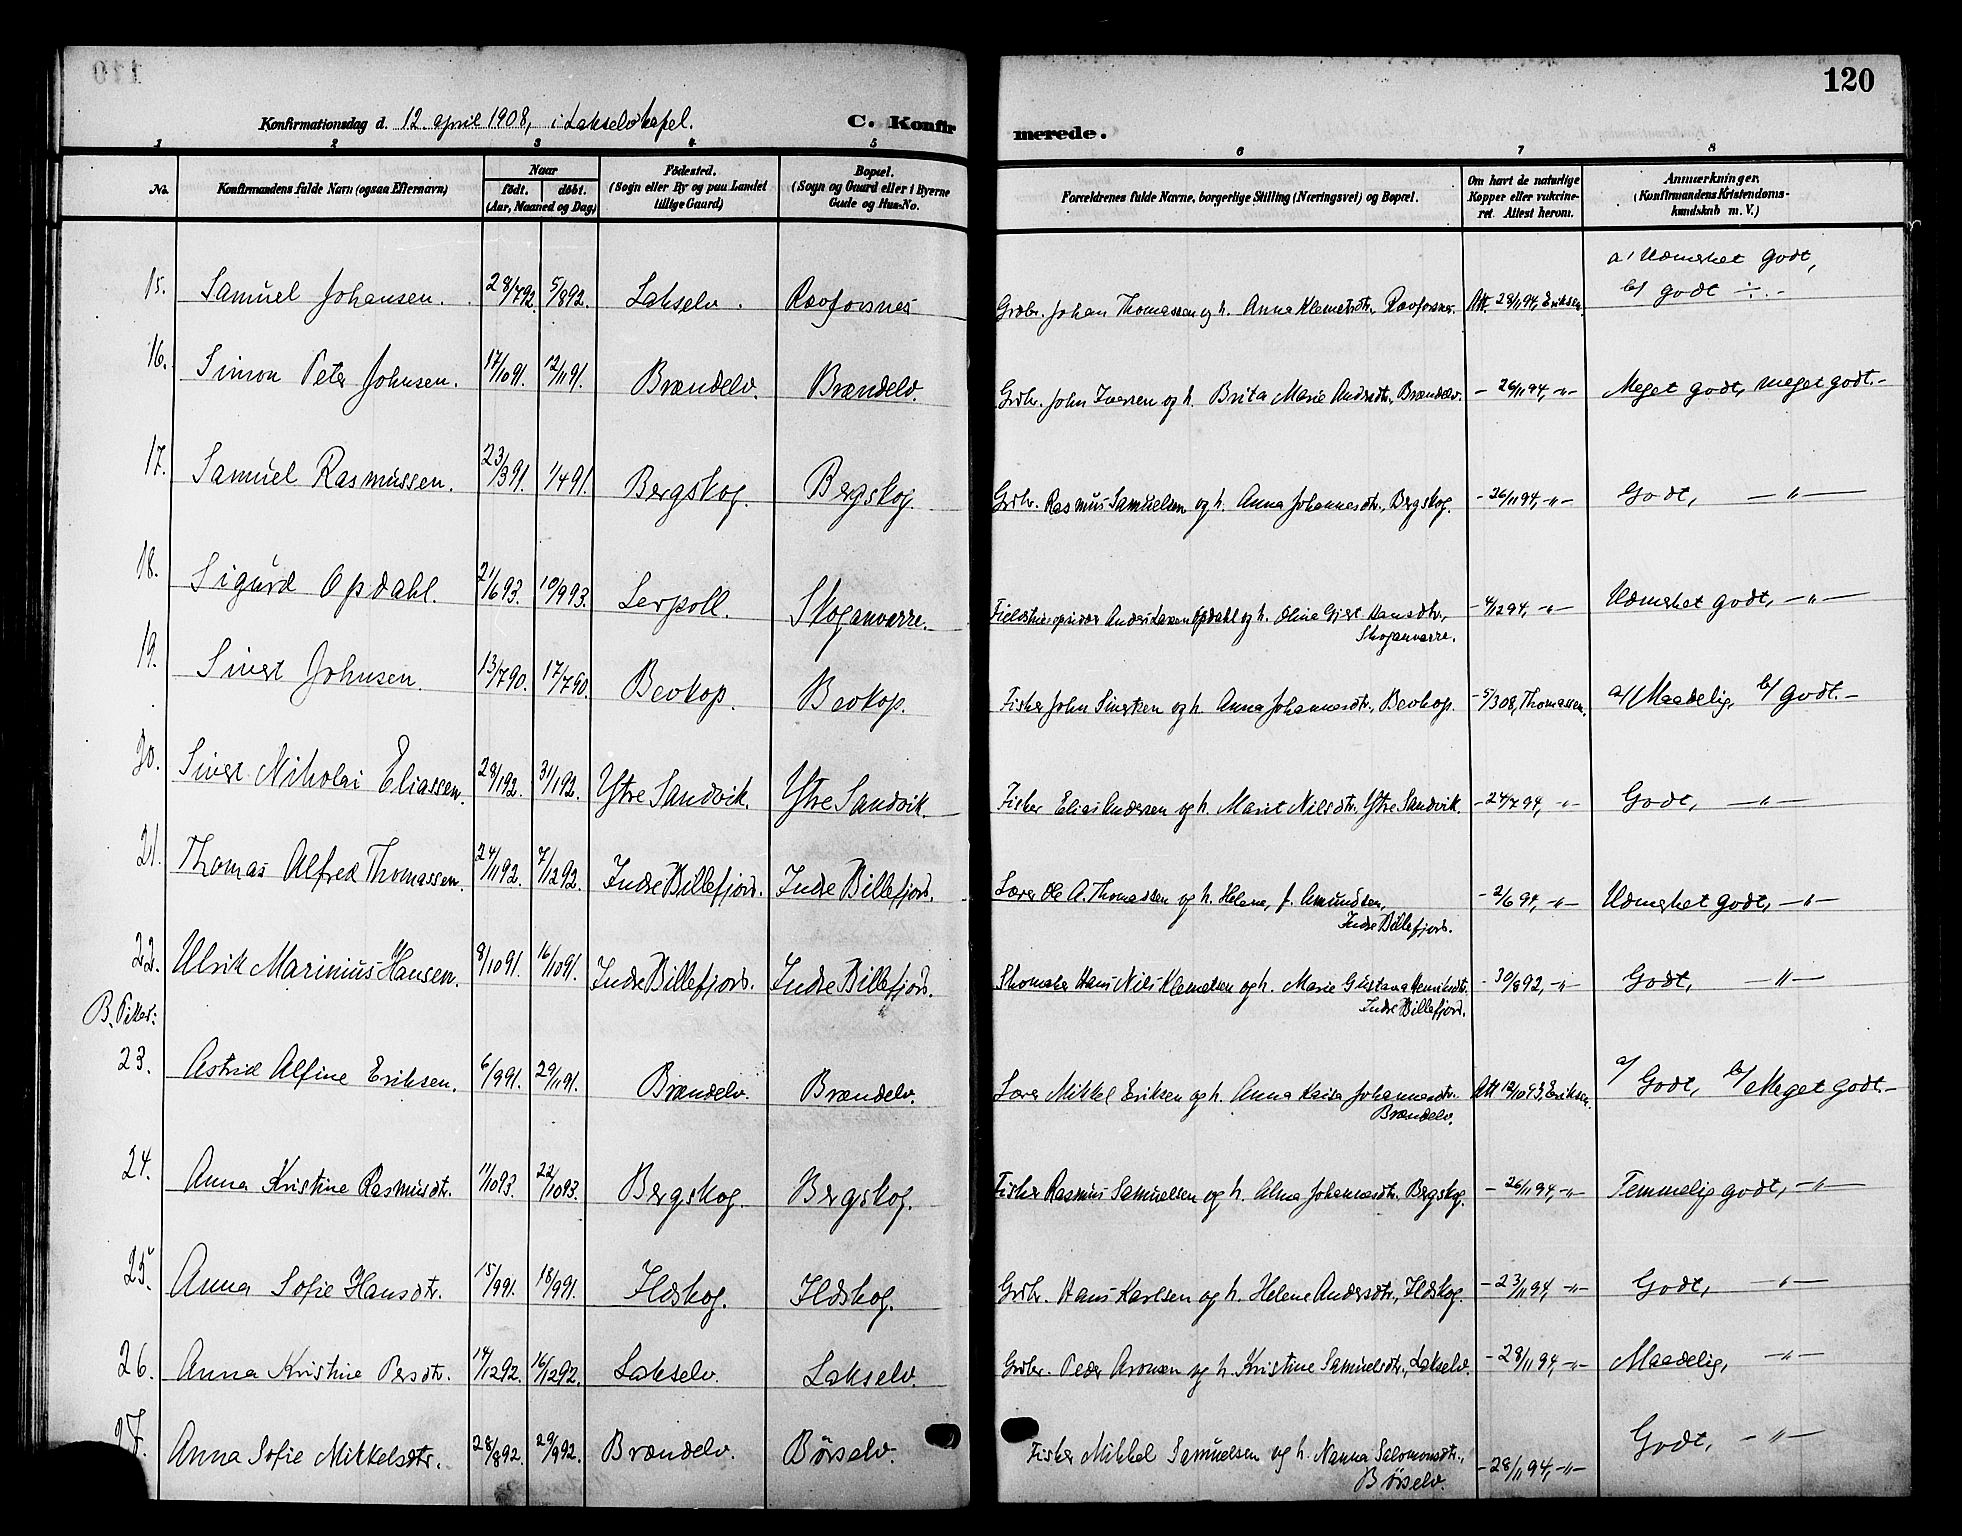 120
Konfirmationsdag d. 12 april 1908, i Lakselv kapel. C. Konfirmerede.
1 2 3 4 5 6 7 8
No. Konfirmandens fulde Navn (ogsaa Efternavn) Naar født. døbt. (Aar, Maaned og Dag) Fødested. (Sogn eller By og paa Landet tillige Gaard) Bopæl. (Sogn og Gaard eller i Byerne Gade og Hus-No. Forældrenes fulde Navne, borgerlige Stilling (Næringsvei) og Bopæl. Om havt de naturlige Kopper eller vakcineret. Attest herom. Anmærkninger. (Konfirmandens Kristendomskundskab m. V.)
15. Samuel Johansen. 28/7 92. 5/8 92. Lakselv. Ravfosnes Grdbr. Johan Thomassen og h. Anna Klemetsdtr., Ravfosnes. Att. 28/11 94, Eriksen. a/ Udmerket godt, b/ godt
16. Simon Peter Johnsen. 17/10 91. 12/11 91. Brændelv. Brændelv. Grdbr. John Iversen og h. Brita Marie Andersdtr., Brændelv. – 26/11 94, –"– Meget godt, meget godt. –
17. Samuel Rasmussen. 23/3 91. 1/4 91. Bergskog. Bergskog. Grdbr. Rasmus Samuelsen og h. Anna Johannesdtr., Bergskog. – 26/11 94, –"– Godt, –"–
18. Sigurd Opdahl. 21/6 93. 10/9 93. Lerpoll. Skoganvarre. Anders Larsen Opdahl og h. Oline Gjert Hansdtr., Skoganvarre. – 4/12 94, –"– Udmerket godt, –"–
19. Sivert Johnsen. 13/7 90. 17/7 90. Bevkop. Bevkop. Fisker John Sivertsen og h. Anna Johannesdtr., Bevkop. – 5/3 08, Thomassen. a/ Maadelig, b/ godt. –
20. Sivert Nikolai Eliassen. 28/1 92. 31/1 92. Ytre Sandvik. Ytre Sandvik. Fisker Elias Andersen og h. Marit Nilsdtr. Ytre Sandvik. – 24/7 94, –"– Godt, –"–
21. Thomas Alfred Thomassen. 24/11 92. 7/12 92. Indre Billefjord. Indre Billefjord. Lærer Ole A. Thomassen og h. Helene, f. Amundsen, Indre Billefjord. – 2/6 94, –"– Udmerket godt, –"–
22. Ulrik Marinius Hansen. 8/10 91. 16/10 91. Indre Billefjord. Indre Billefjord. Skomaker Hans Nils Klemetsen og h. Marie Gustava Henriksdtr. Indre Billefjord. – 30/8 92, –"– Godt, –"–
B. Piker:
23. Astrid Alfine Eriksen. 6/9 91. 29/11 91. Brændelv. Brændelv. Lærer Mikkel Eriksen og h. Anna Kaisa Johannesdtr. Brændelv. Att 12/10 93, Eriksen. a/ Godt, b/ Meget godt. –
24. Anna Kristine Rasmusdtr. 11/10 93. 22/10 93. Bergskog. Bergskog. Fisker Rasmus Samuelsen og h. Anna Johannesdtr., Bergskog. – 26/11 94, –"– Temmelig godt, –"–
25. Anna Sofie Hansdtr. 15/9 91. 18/9 91. Ildskog. Ildskog. Grdbr. Hans Karlsen og h. Helene Andersdtr., Ildskog. – 23/11 94, –"– Godt, –"–
26. Anna Kristine Persdtr. 14/12 92. 16/12 92. Lakselv. Lakselv. Grdbr. Peder Aronsen og h. Kristine Samuelsdtr., Lakselv. – 28/11 94, –"– Maadelig, –"–
27. Anna Sofie Mikkelsdtr. 28/8 92. 29/9 92. Brændelv. Børselv. Fisker Mikkel Samuelsen og h. Nanna Salomonsdtr., Børselv. – 28/11 94, –"– Godt, –"–